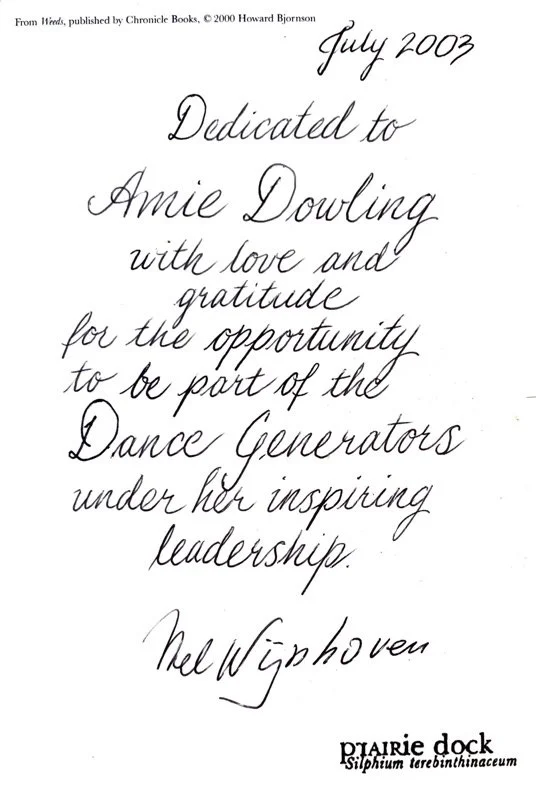 From Weeds, published by Chronicle Books, © 2000 Howard Bjornson
July 2003
Dedicated to
Amie Dowling
with love and
gratitude
for the opportunity
to be part of the
Dance Generators
under her inspiring
leadership.
Mel Wijnhoven
prairie dock
Silphium terebinthinaceum